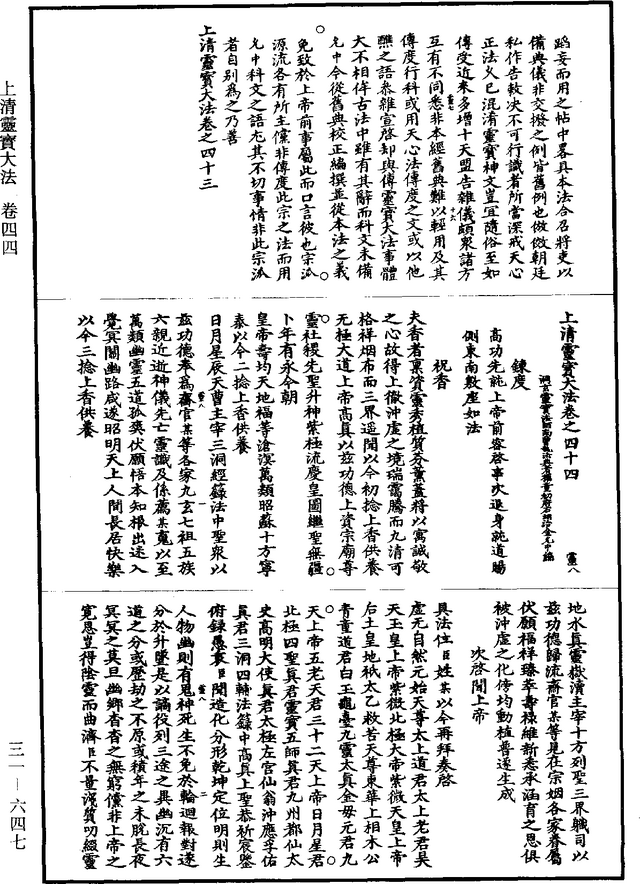 上清靈寶大法 卷四四
三一－六四七
蹈妄而用之帖中畧具本法合召將吏以
備典儀非交撥之例皆舊例也倣傚朝廷
私作告勑決不可行識者所當深戒天心
正法火巳混淆靈寶神文豈宜隨俗至如
傳受近來多增十天盟告雜儀頗衆諸方
互有不同悉非本經舊典難以輕用及其
傳度行科或用天心法傳度之文或以他
醮之語叅維宣啓却與傳靈寶大法事體
大不相侔古法中雖有其辭而科文未備
允中今從舊典校正編撰並從本法之義
免致於上帝前事屬此而口言彼也宗派
源流各有所主儻非傳度此宗之法而用
允中科文之語尤其不切事情非此宗派
者自别爲之乃善
上清靈寶大法卷之四十三
上清靈寶大法卷之四十四
靈八
鍊度
高功先詣上帝前容啓事次退身詣道賜
側東南敷座如法
祝香
夫香者禀質靈秀植質芬薰蓋將以寓誠敬
之心故得上徹沖虚之境瑞靄騰而九清可
格祥烟布而三界遥聞以今初捻上香供養
無極大道上帝高真以兹功德上資宗廟尊
靈社稷先聖升神紫極流慶皇圖繼聖無疆
卜年有永今朝
皇帝壽均天地福等滄溟萬類昭蘇十方寧
泰以今二捻上香供養
日月星辰天曹主宰三洞經籙法中聖衆以
兹功德奉爲齋官某等各家九玄七祖五族
六親近逝神儀先亡靈識及係薦某寃以至
萬類幽靈五道孤爽伏願悟本知根出迷入
覺冥關幽路咸遂昭明天上人間長居快樂
以今三捻上香供養
地水真靈嶽瀆主宰十方列聖三界軄司以
兹功德歸流齋官某等見在宗姻各家眷屬
伏願福祥臻萃壽祿維新悉承涵育之恩俱
被沖虚之化傍均動植普遂生成
次啓聞上帝
具法位臣姓某以今再拜奏啓
虚元自然元始天尊太上道君太上老君昊
天玉皇上帝紫微北極大帝紫微天皇上帝
后土皇地祇太乙救苦天尊東華上相木公
青童道君白玉龜臺九靈太真金母元君九
天上帝五老天君三十二天上帝日月星君
北極四聖真君靈寶五師真君九州都仙太
史高明大使真君太極左宫仙翁沖應孚佑
真君三洞四輔法籙中高真上聖恭祈宸鑒
俯錄愚衷臣聞造化分形乾坤定位明則生
人物幽則有鬼神死生不免於輪迴報對遂
分於升墜是以謫役列三途之異幽沉有六
道之分或歷劫之不原或積年之未脱長夜
冥冥之莫旦幽鄉杳杳之無窮儻非上帝之
寛恩豈得陰靈而曲濟臣不量淺質叨綴靈